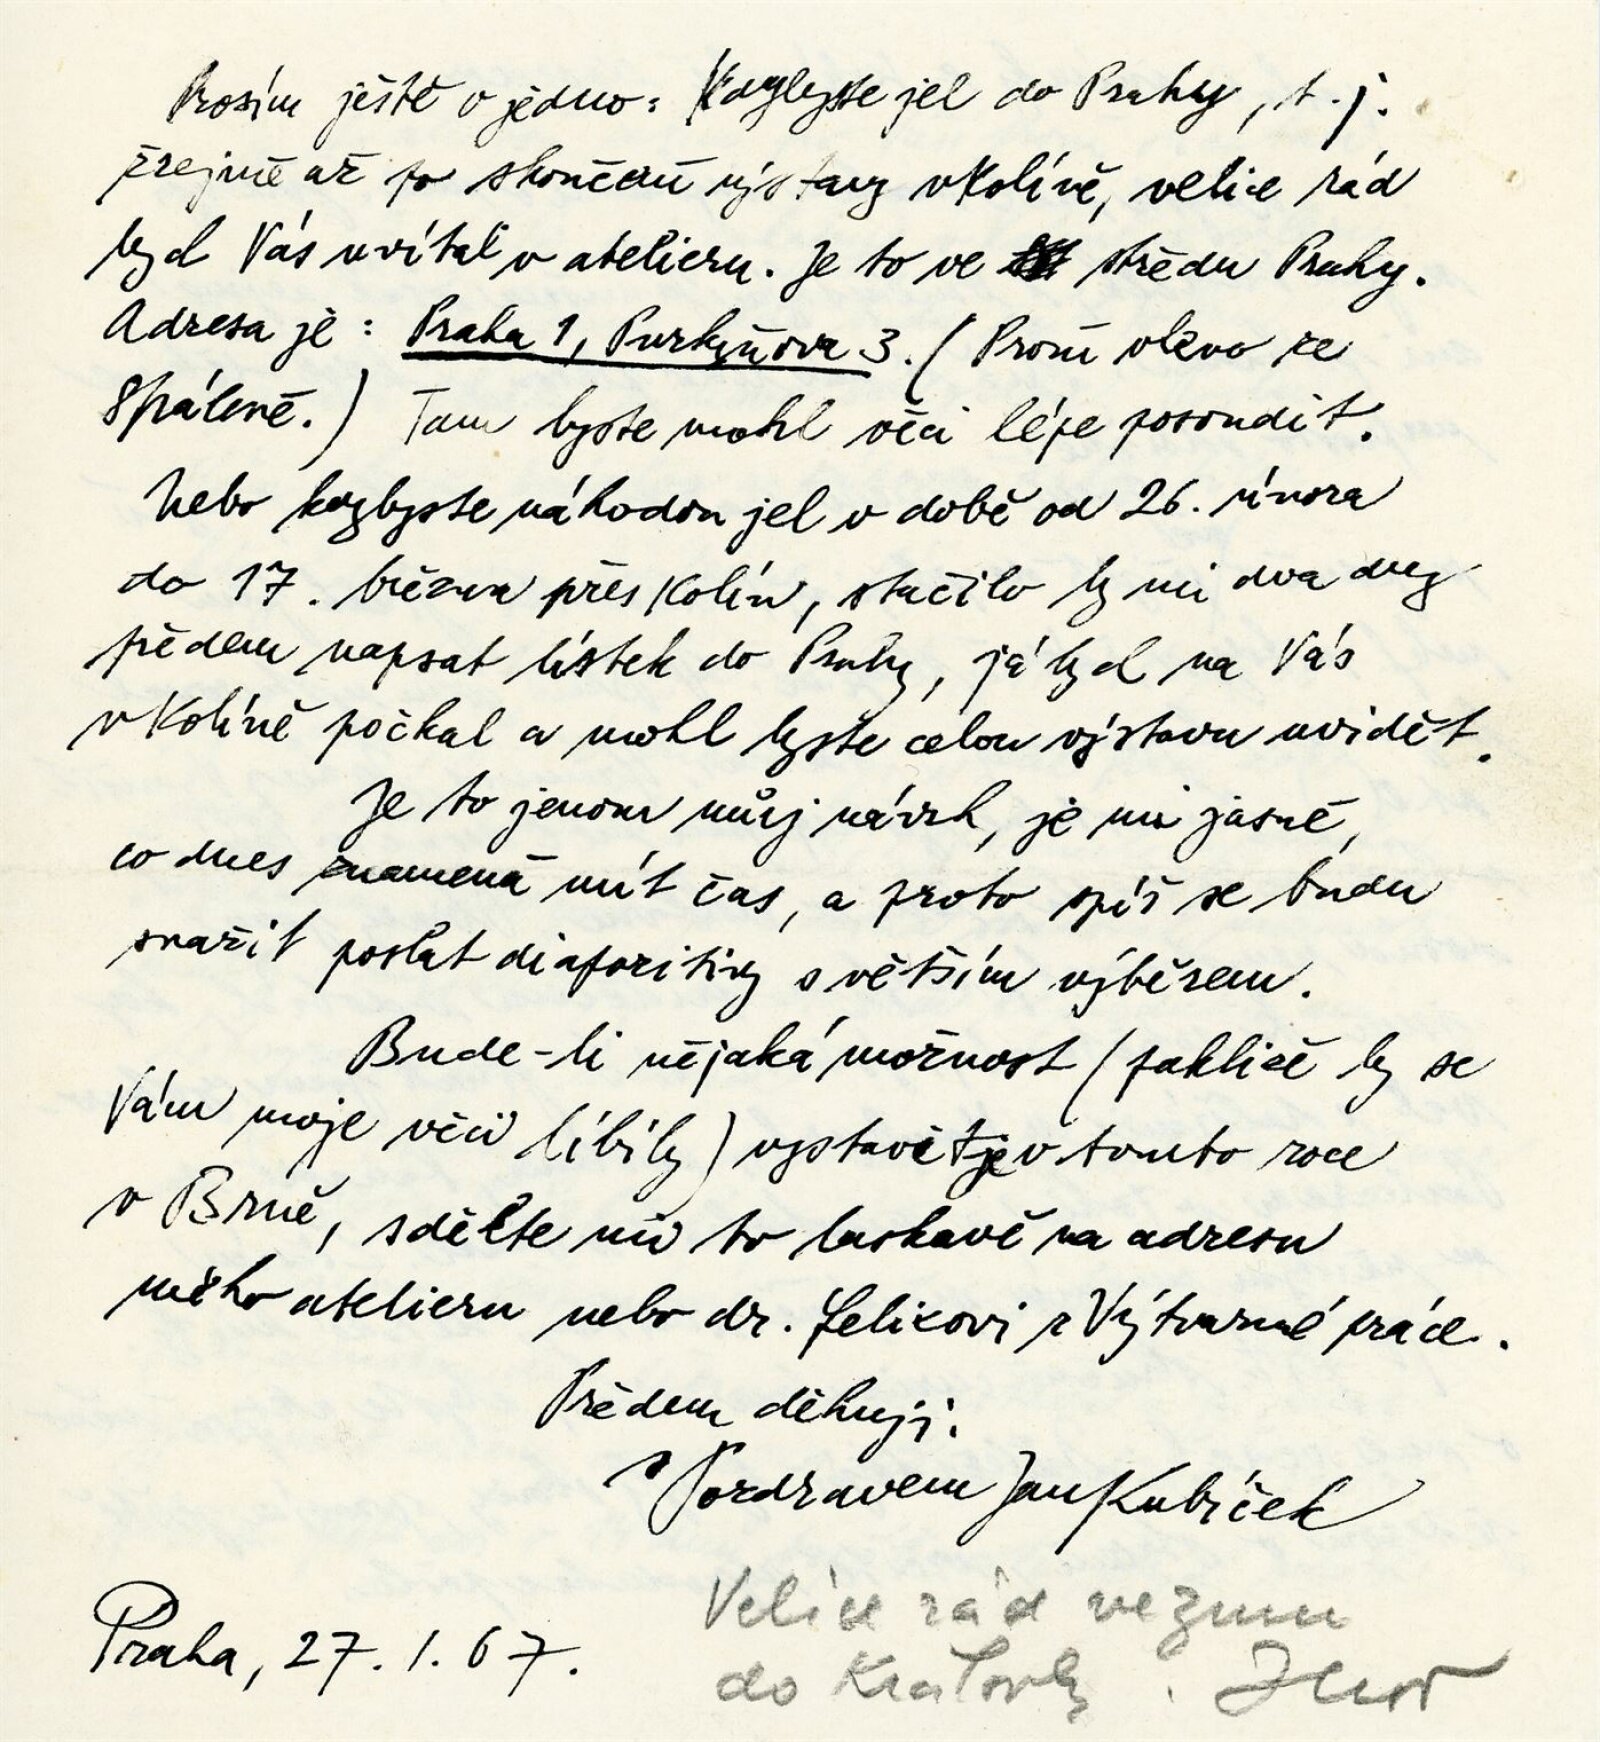 Prosím ještě o jedno: Kdybyste jel do Prahy, t.j.
zřejmě až po skončení výstavy v Kolíně, velice rád
bych Vás uvítal v atelieru. Je to ve středu Prahy.
Adresa je: Praha 1, Purkyňova 3. (První vlevo ze
Spálené.) Tam byste mohl věci lépe posoudit.
Nebo kdybyste náhodou jel v době od 26. února
do 17. března přes Kolín, stačilo by mi dva dny
předem napsat lístek do Prahy, já bych na Vás
v Kolíně počkal a mohl byste celou výstavu uvidět.
Je to jenom můj návrh, je mi jasné,
co dnes znamená mít čas, a proto spíš se budu
snažit poslat diapozitivy s větším výběrem.
Bude-li nějaká možnost (pakliže by se
Vám moje věci líbily) vystavit je v tomto roce
v Brně, sdělte mi to laskavě na adresu
mého atelieru nebo dr. Felixovi z Výtvarné práce.
Předem děkuji.
S Pozdravem Jan Kubíček
Praha, 27. 1. 67.
Velice rád vezmu
do